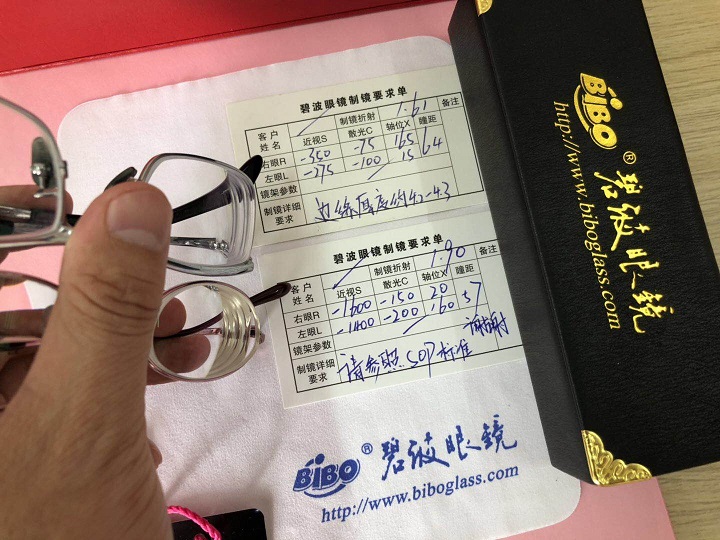 碧波眼镜制镜要求单
客户姓名 制镜折射 1.61 备注
近视S 散光C 轴位X 瞳距
右眼R -350 -75 165 64
左眼L -275 -100 15
镜架参数
制镜详细要求
碧波眼镜制镜要求单
客户姓名 制镜折射 1.90 备注
近视S 散光C 轴位X 瞳距
右眼R -1600 -150 20 57
左眼L -1400 -200 160
镜架参数 谢谢
制镜详细要求 请参照SOP标准
BiBO® 碧波眼鏡
http://www.biboglass.com
BiBO® 碧波眼鏡
http://www.biboglass.com